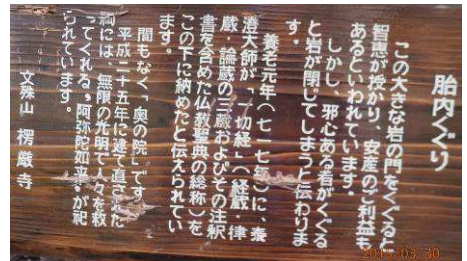 胎内くぐり
この大きな岩の門をくぐると
智恵が授かり、安産のご利益も
あるといわれています。
しかし、邪心ある者がくぐる
と岩が閉じてしまうと伝わりま
す。
養老元年(七一七年)に、泰
澄大師が「一切経」(経蔵・律
蔵・論蔵の三蔵およびその注釈
書を含めた仏教聖典の総称)を
この下に納めたと伝えられてい
ます。
間もなく「奥の院」です。
平成二十五年に建て直された
祠には、無限の光明で人々を救
ってくれる“阿弥陀如来”が祀
られています。
文殊山 楞厳寺
2015/03/30